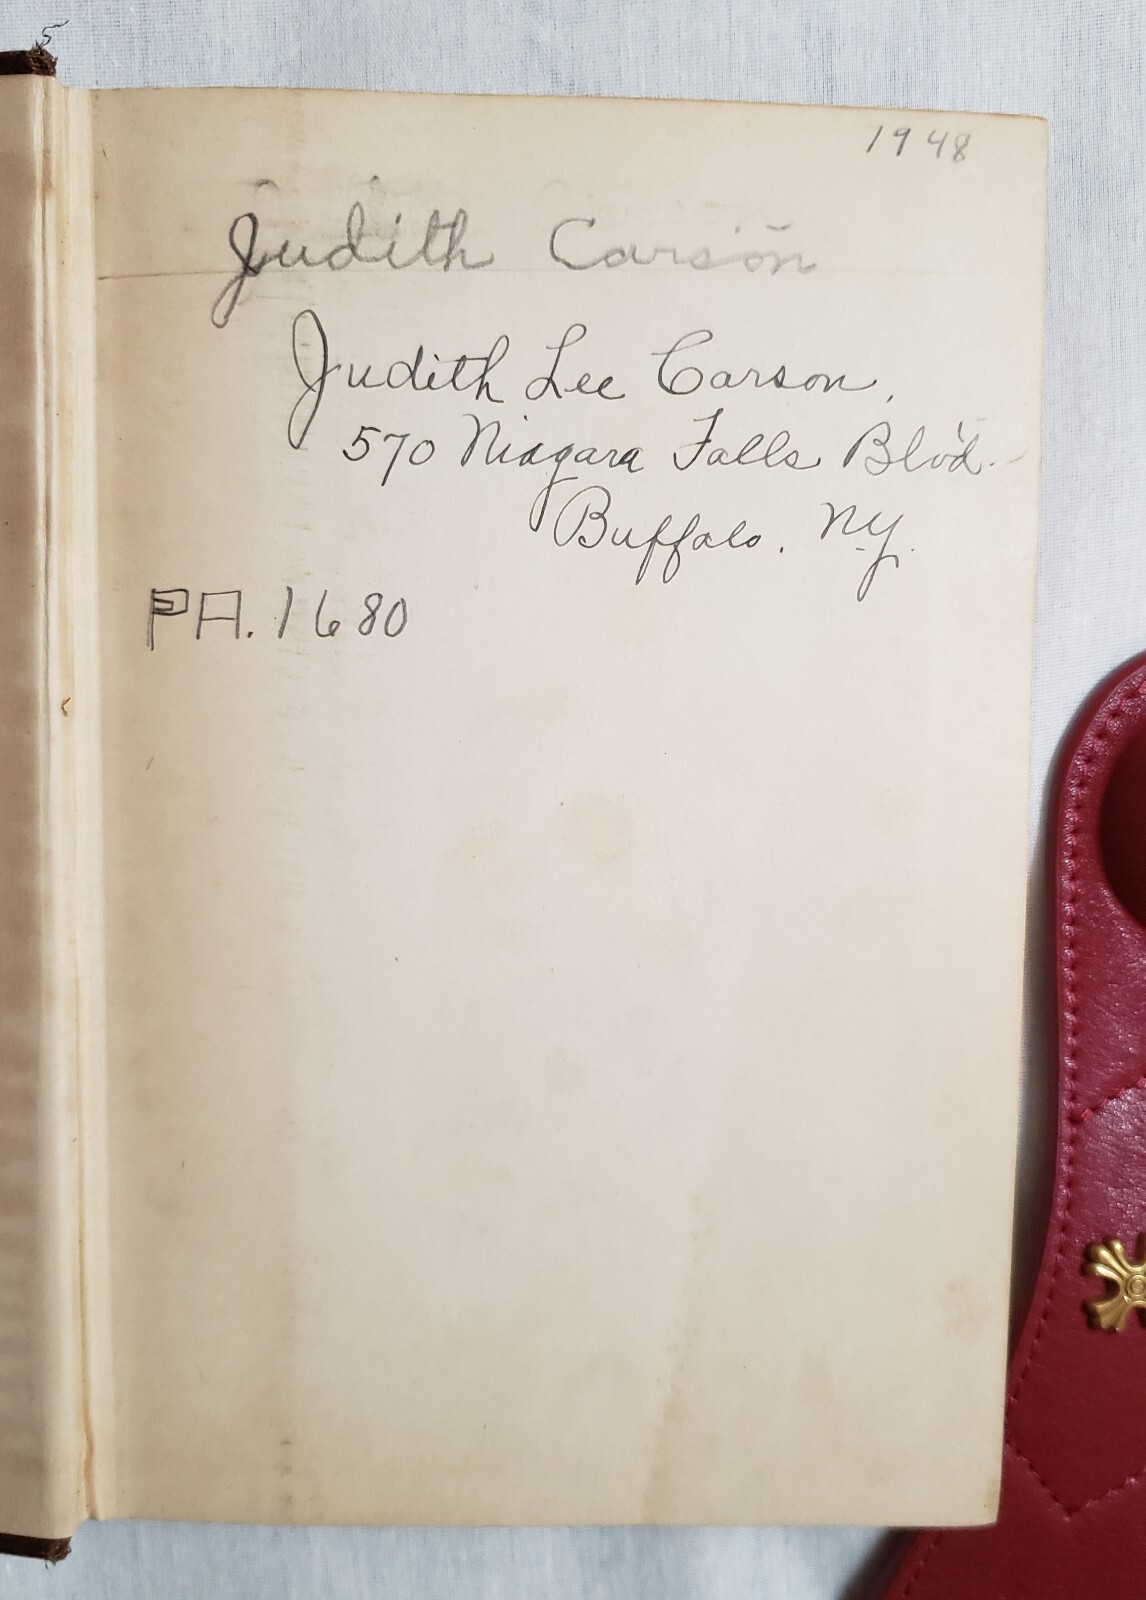 1948
Judith Carson
Judith Lee Carson,
570 Niagara Falls Blv'd.
Buffalo. N.Y.
PA. 1680